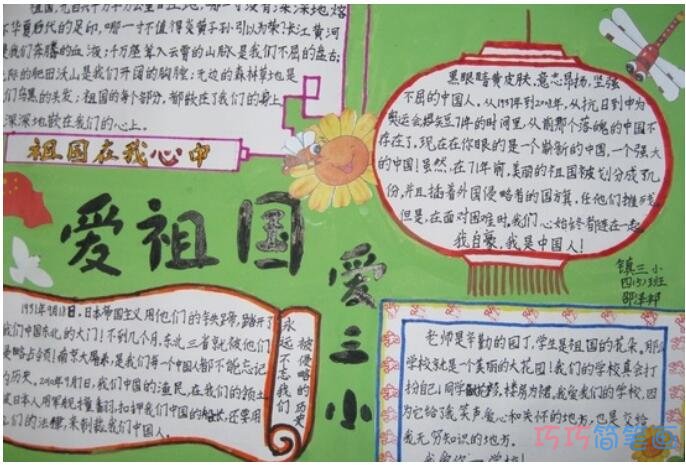 华夏后代的足印,哪一寸不值得炎黄子孙引以为荣?长江黄河
是我们奔腾的血液;千万座耸入云霄的山脉是我们不屈的
际的肥田沃山是我们开阔的胸膛;无边的森林草地是
们乌黑的头发;祖国的每个部分,都
深深地
在我们的心上。
祖国在我心中
黑眼睛黄皮肤,意志昂扬,坚强
不屈的中国人。从1937年到2008年,从抗日到申办
奥运会
71年的时间里,从前那个落魄的中国不
存在了,现在在你眼的是一个崭新的中国,一个强大
的中国!虽然,在71年前,美丽的祖国被划分成了几
份,并且插着外国侵略者的国旗,任他们
但是,在面对困难时,我们心始终都连在一起
我自豪,我是中国人!
镇三小
四(5)班
邵泽邦
爱祖国
爱三小
1931年9月18日,日本帝国主义用他们的铁蹄,踏开了
我们中国东北的大门!不到几个月,东北三省就被他们
侵略占领!南京大屠杀,是我们每一个中国人都不能忘记
的历史。2010年9月7日,我们中国的渔民,在我们的领土
被日本人用军舰撞
,扣押我们中国的船长,还要用
他们的法律,来制裁我们中国人。
永远不忘我们
被侵略的历史
老师是辛勤的园丁,学生是祖国的花朵。那么
学校就是一个美丽的大花园!我们的学校真会打
扮自己!同学
,楼房为裙。我爱我们的学校,因
为它给了我笑声、爱心和关怀的地方,也是交给
我无穷知识的地方。
我爱你——学校!
巧巧简笔画